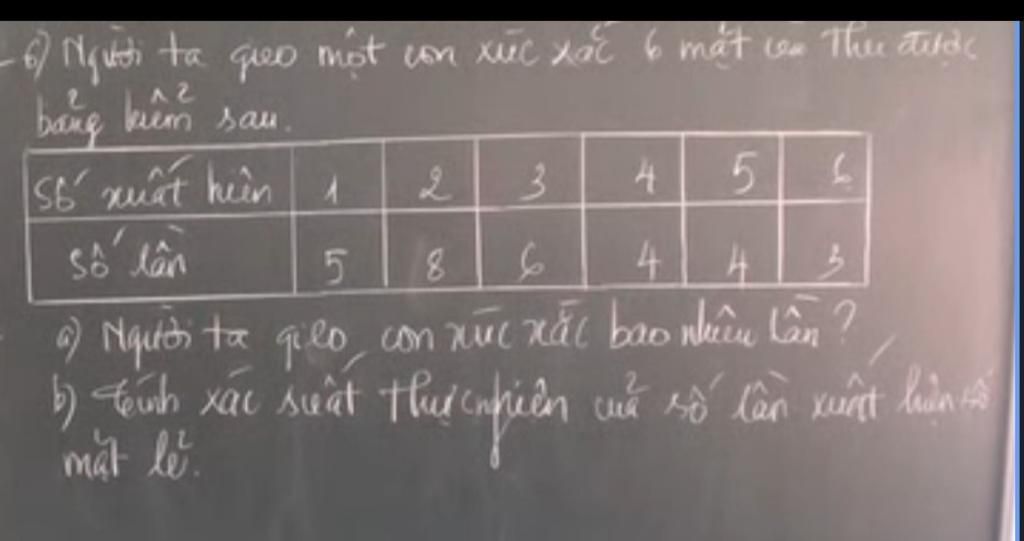 6) Người ta gieo một con xúc xắc 6 mặt thu được
bảng kiểm sau.
Số xuất hiện 1 2 3 4 5 6
Số lần 5 8 6 4 4 3
a) Người ta gieo con xúc xắc bao nhiêu lần?
b) tính xác suất thực nghiên của số lần xuất hiện số
mặt lẻ.